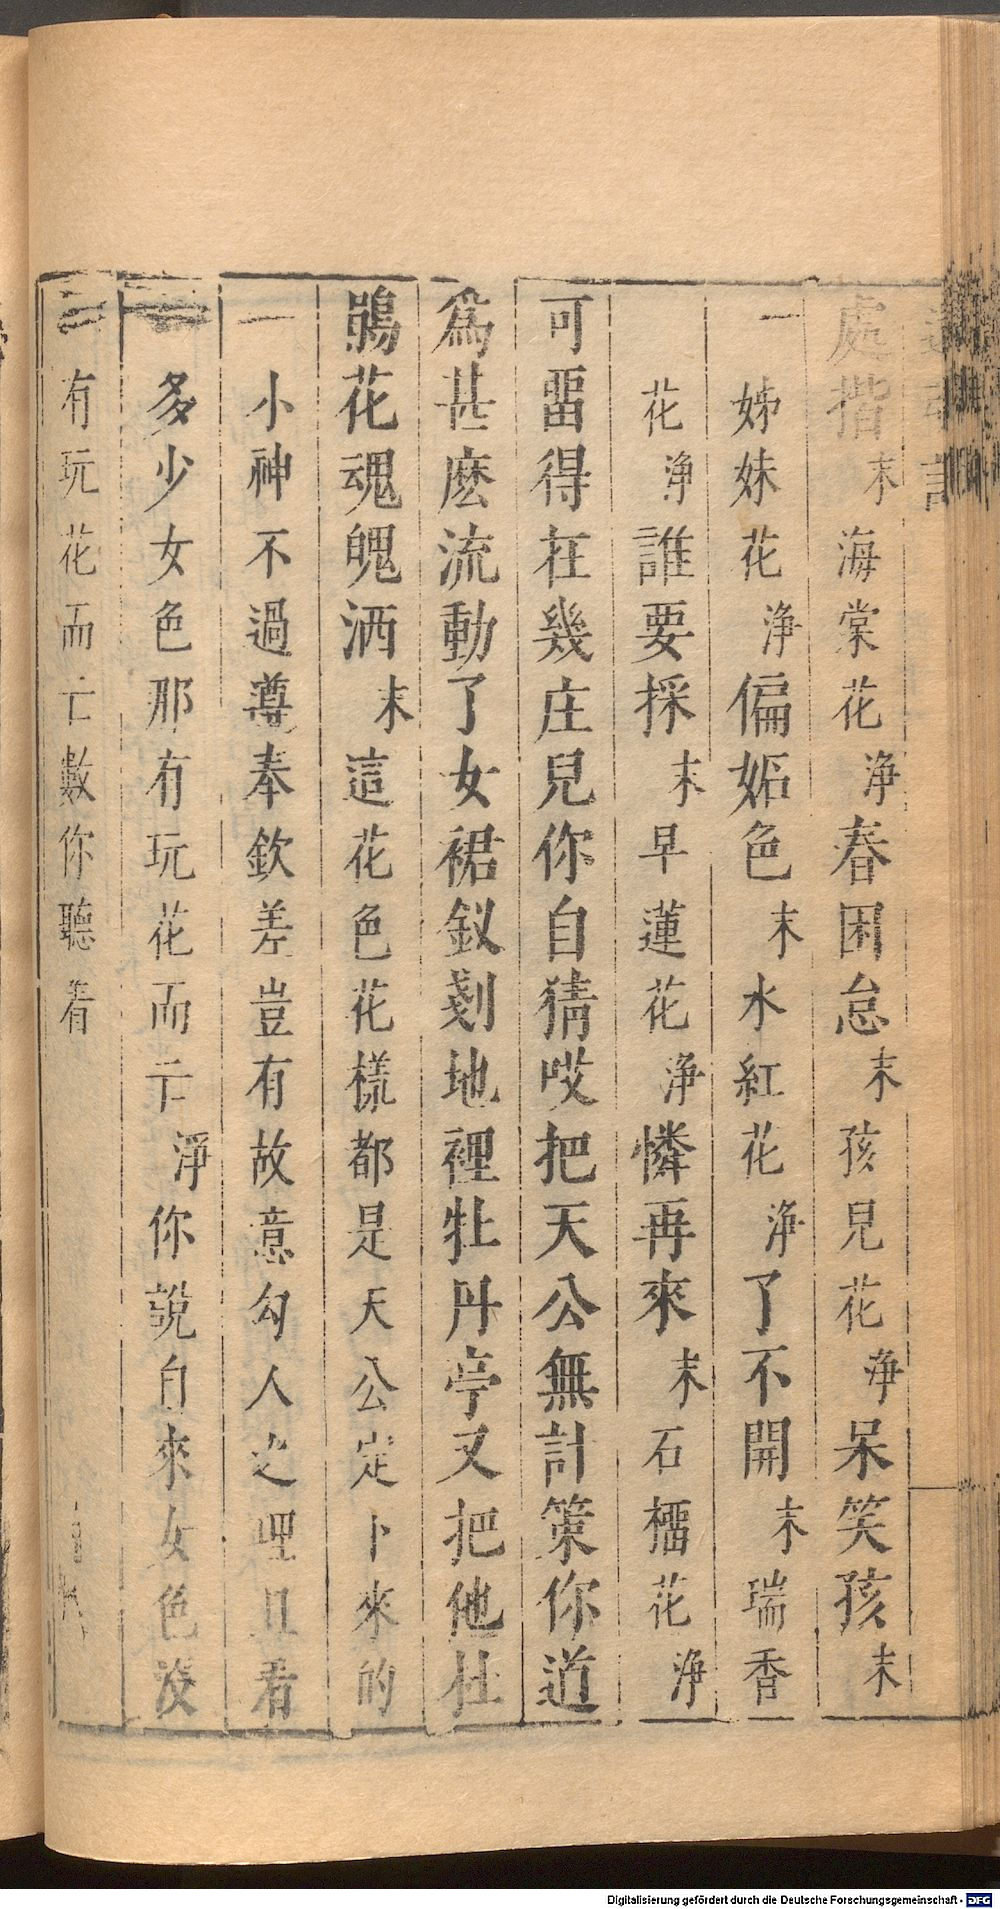 處揩末海棠花淨春困怠末孩兒花淨呆笑孩末
姊妹花淨偏妬色末水紅花淨了不開末瑞香
花淨誰要採末早蓮花淨憐再來末石橊花淨
可畱得在幾庄兒你自猜哎把天公無計策你道
爲甚麽流動了女裙釵剗地裡牡丹亭又把他杜
鵑花魂魄洒末這花色花樣都是天公定下來的
小神不過遵奉欽差豈有故意勾人之理且看
多少女色那有玩花而亡淨你說自來女色沒
有玩花而亡數你聽着
Digitalisierung gefördert durch die Deutsche Forschungsgemeinschaft - DFG